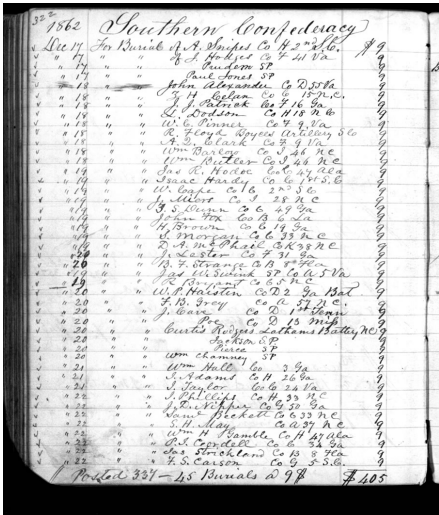 332
1862 Southern Confederacy
Dec 17 For Burial of A. Snipes Co H 2nd S.C. $ 9
" 17 " " of J. Hodges Co F 41 Va 9
" 17 " " Prudem SP 9
" 17 " " Paul Jones SP 9
" 18 " " John Alexander Co D 55 Va 9
" 18 " " Co C 15 N.C. 9
" 18 " " J. J. Patrick Co F 16 Ga 9
" 18 " " Dodson Co H 18 N C 9
" 18 " " W. C. Pinner Co F 9 Va 9
" 18 " " R. Floyd Boyces Artillery S Co 9
" 18 " " A. L. Clark Co F 9 Va 9
" 18 " " Wm Barlow Co I 46 NC 9
" 18 " " Wm Butler Co I 46 NC 9
" 19 " " Jas R. Hodoe Co C 47 Ala 9
" 19 " " Isaac Hardy Co C 1st S.C 9
" 19 " " W. Cape Co C 2nd S Co 9
" 19 " " J. Miors Co I 28 NC 9
" 19 " " S Dunn Co G 49 Ga 9
" 19 " " John Fox Co B 6 La 9
" 19 " " H. Brown Co G 19 Ga 9
" 19 " " Morgan Co C 33 NC 9
" 19 " " D. A. McPhail Co K 38 NC 9
" 20 " " J. Lester Co F 31 Ga 9
" 20 " " B. F. Strange Co B 8th Fla 9
" 19 " " Jas W. Swink SP Co A 5 Va 9
" 19 " " Bryant Co C 5 NC 9
" 20 " " W. P. Hairstin Co D 2 Ga Bat 9
" 20 " " F. B. Grey Co A 57 NC. 9
" 20 " " J. Cave Co D 1st Tenn 9
" 20 " " Poe Co D 13 Miss 9
" 20 " " Curtis Rodgers Lathams Battery NC 9
" 20 " " Jackson S.P 9
" 20 " " Pierce SP 9
" 20 " " Wm Chamney SP 9
" 21 " " Wm Hall Co 3 Ga 9
" 21 " " I. Adams Co H 26 Ga 9
" 21 " " I. Taylor Co C 26 Va 9
" 22 " " I. Phillips Co H 33 NC 9
" 22 " " Nipper Co G 50 Ga 9
" 22 " " Saml Beckett Co C 33 NC 9
" 22 " " S. H. May Co A 37 NC 9
" 22 " " Wm H Gamble Co H 47 Ala 9
" 22 " " Cordell Co C 34 Ga 9
" 22 " " Jas Strickland Co B 8 Fla 9
" 22 " " F. S. Carson Co G 5 S.C. 9
Posted 337 — 45 Burials @ 9$ $ 405